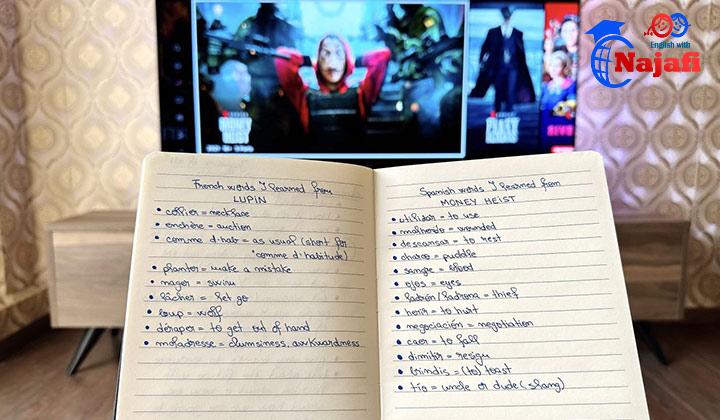 English with
Najafi
MONEY
HEIST
French words I learned from
LUPIN
• collier = necklace
• enchère = auction
• comme d'hab = as usual (short for
"comme d'habitude)
• planter = make a mistake
• nager = swim
• lâcher = let go
• loup = wolf
• déraper = to get out of hand
• maladresse = clumsiness, awkwardness
Spanish words I learned from
MONEY HEIST
• utilizar = to use
• malherido = wounded
• descansar = to rest
• charco = puddle
• sangre = blood
• ojos = eyes
• ladrón/ladrona = thief
• herir = to hurt
• negociación = negotiation
• caer = to fall
• dimitir = resign
• brindis = (to) toast
• tío = uncle or dude (slang)